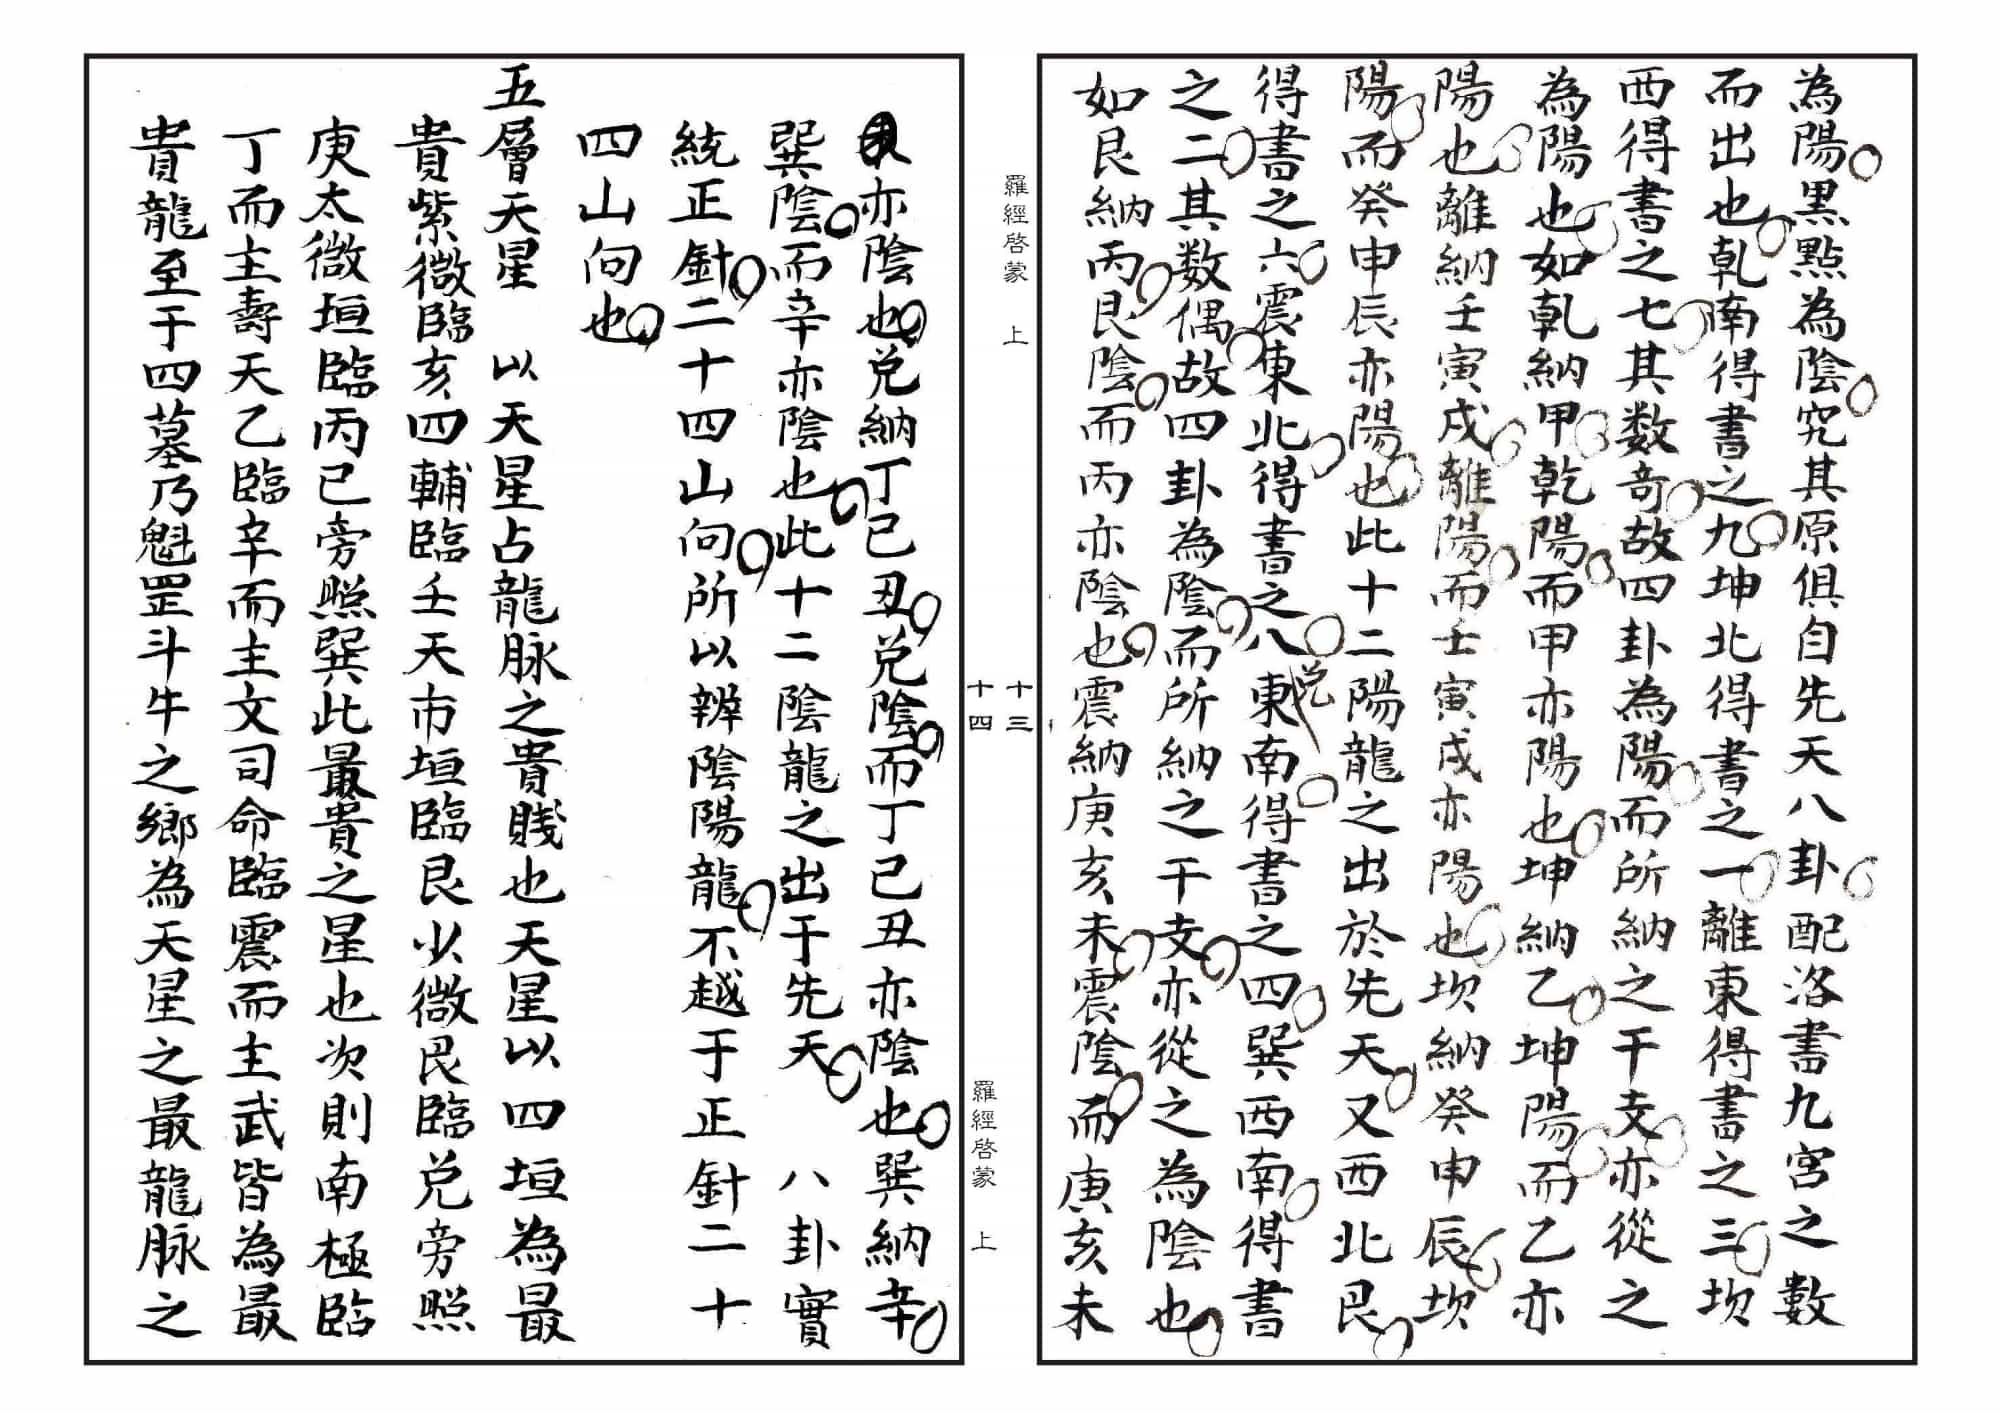 為陽黒點為陰究其原俱自先天八卦配洛書九宮之數
而出也乹南得書之九坤北得書之一離東得書之三坎
西得書之七其数奇故四卦為陽而所納之干支亦從之
為陽也如乹納甲乾陽而甲亦陽也坤納乙坤陽而乙亦
陽也離納壬寅戍離陽而壬寅戍亦陽也坎納癸申辰坎
陽而癸申辰亦陽也此十二陽龍之出於先天又西北艮
得書之六震東北得書之八兌東南得書之四巽西南得書
之二其数偶故四卦為陰而所納之干支亦從之為陰也
如艮納丙艮陰而丙亦陰也震納庚亥未震陰而庚亥未
羅經啓蒙 上
十三
十四
羅經啓蒙 上
亦陰也兌納丁已丑兌陰而丁己丑亦陰也巽納辛
巽陰而辛亦陰也此十二陰龍之出于先天 八卦實
統正針二十四山向所以辨陰陽龍不越于正針二十
四山向也
五層天星 以天星占龍脉之貴賤也天星以四垣為最
貴紫微臨亥四輔臨壬天市垣臨艮少微艮臨兌旁照
庚太微垣臨丙已旁照巽此最貴之星也次則南極臨
丁而主壽天乙臨辛而主文司命臨震而主武皆為最
貴龍至于四墓乃魁罡斗牛之鄉為天星之最龍脉之